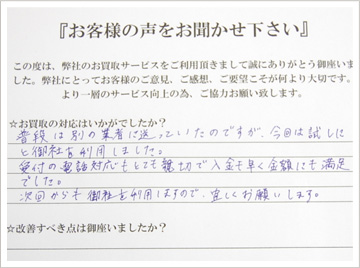 『お客様の声をお聞かせ下さい』
この度は、弊社のお買取サービスをご利用頂きまして誠にありがとう御座いま
した。弊社にとってお客様のご意見、ご感想、ご要望こそが何より大切です。
より一層のサービス向上の為、ご協力お願い致します。
☆お買取の対応はいかがでしたか？
普段は別の業者に送っていたのですが、今回は試しに
と御社を利用しました。
受付の電話対応もとても親切で入金も早く金額にも満足
でした。
次回からも御社を利用しますので、宜しくお願いします。
☆改善すべき点は御座いましたか？